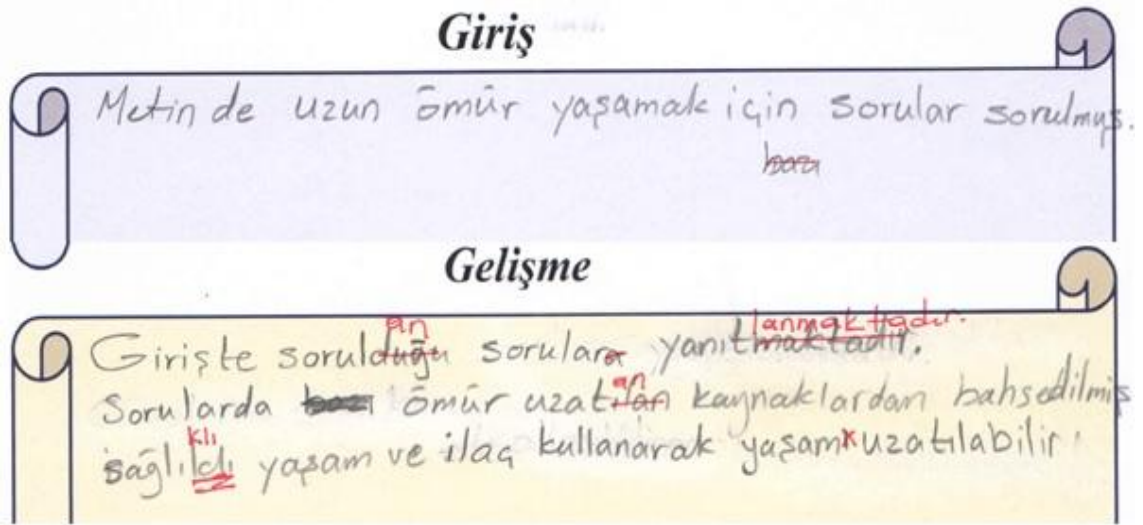 Giriş
Metin de uzun ömür yaşamak için sorular sorulmuş.
bazı
Gelişme
an lanmaktadır.
Girişte sorulduğu sorulara yanıtmaktadır.
an
Sorularda bazı ömür uzatılan kaynaklardan bahsedilmiş
klı
sağlıldı yaşam ve ilaç kullanarak yaşam x uzatılabilir.